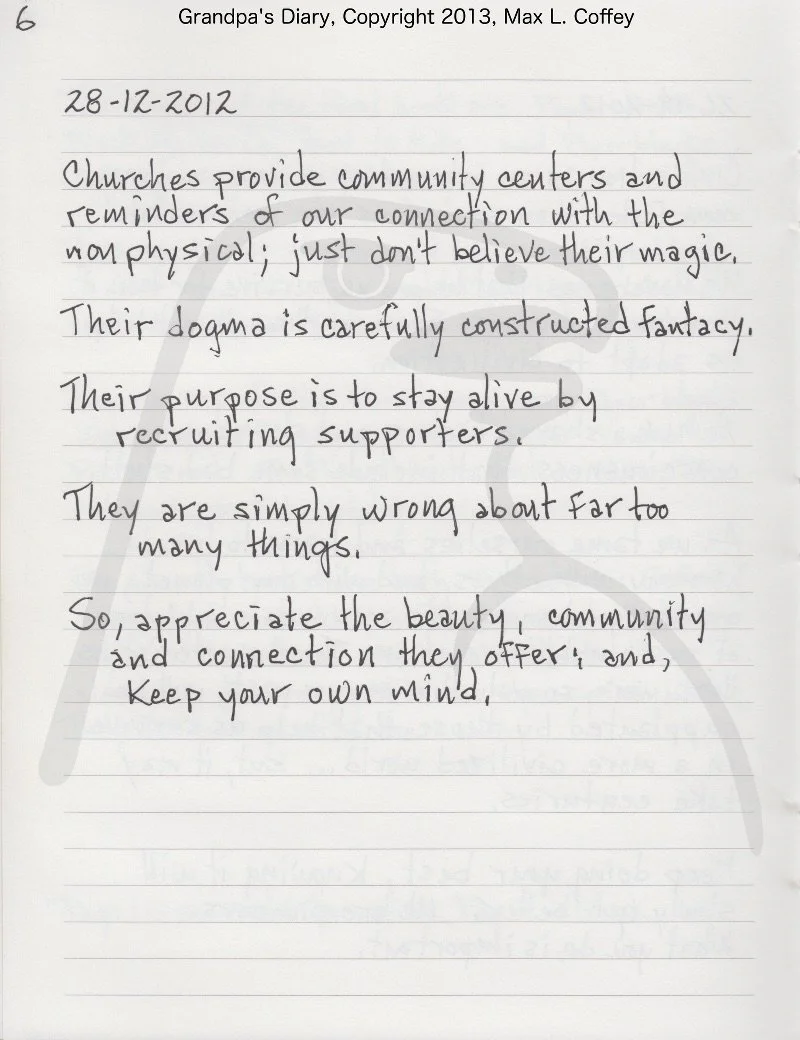 6
Grandpa's Diary, Copyright 2013, Max L. Coffey
28-12-2012
Churches provide community centers and
reminders of our connection with the
non physical; just don't believe their magic.
Their dogma is carefully constructed fantacy.
Their purpose is to stay alive by
recruiting supporters.
They are simply wrong about far too
many things.
So, appreciate the beauty, community
and connection they offer; and,
Keep your own mind.